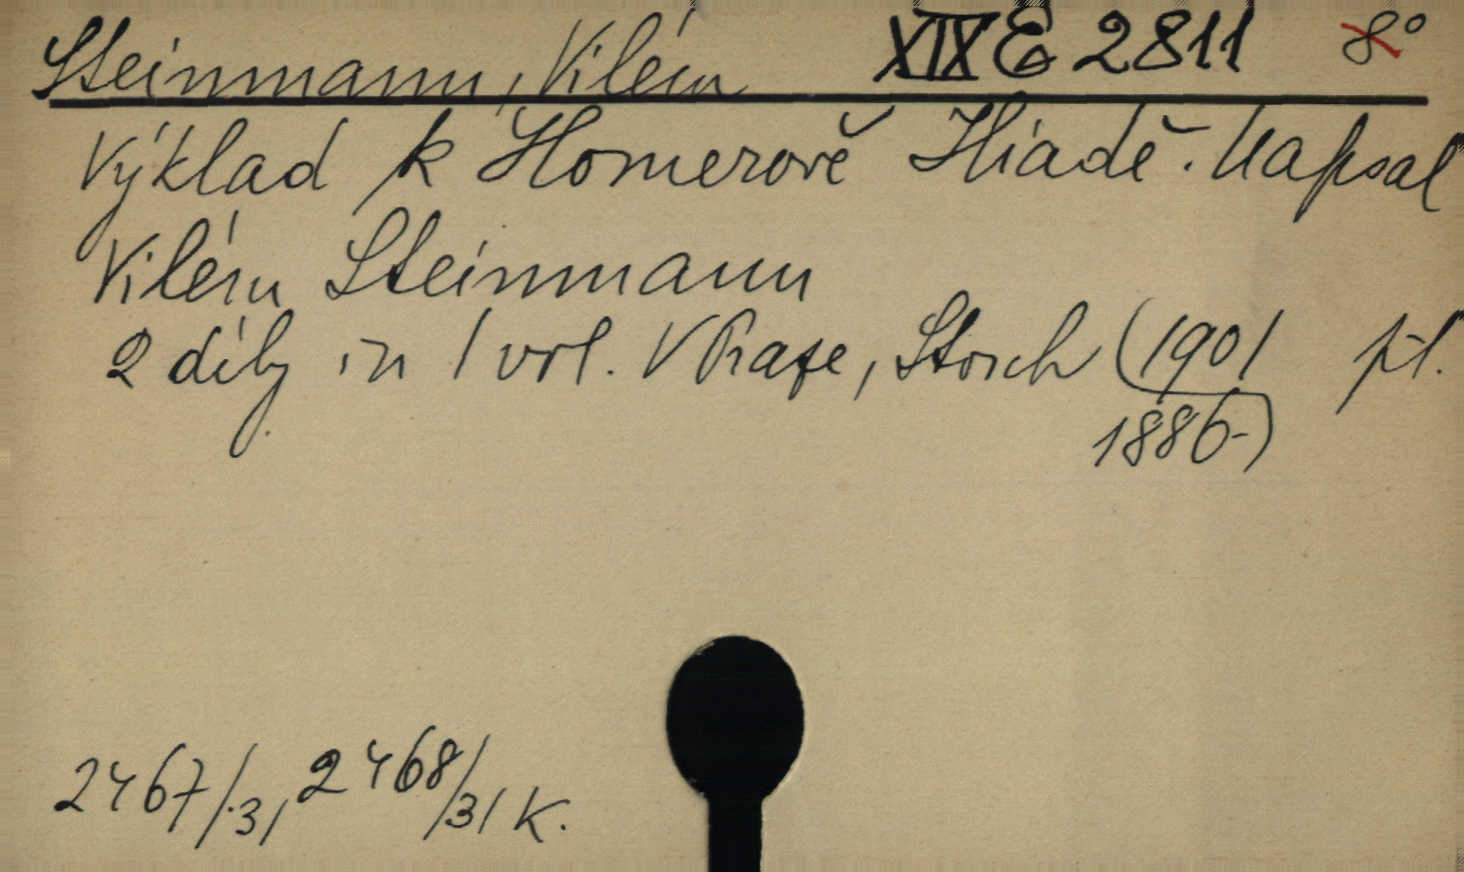 Steinmann, Vilém XIX E 2811 8°
Výklad k Homerově Iliadě. Napsal
Vilém Steinmann
2 díly in 1 vol. V Praze, Storch (1901 pl.
1886-)
2467/31, 2468/31 K.